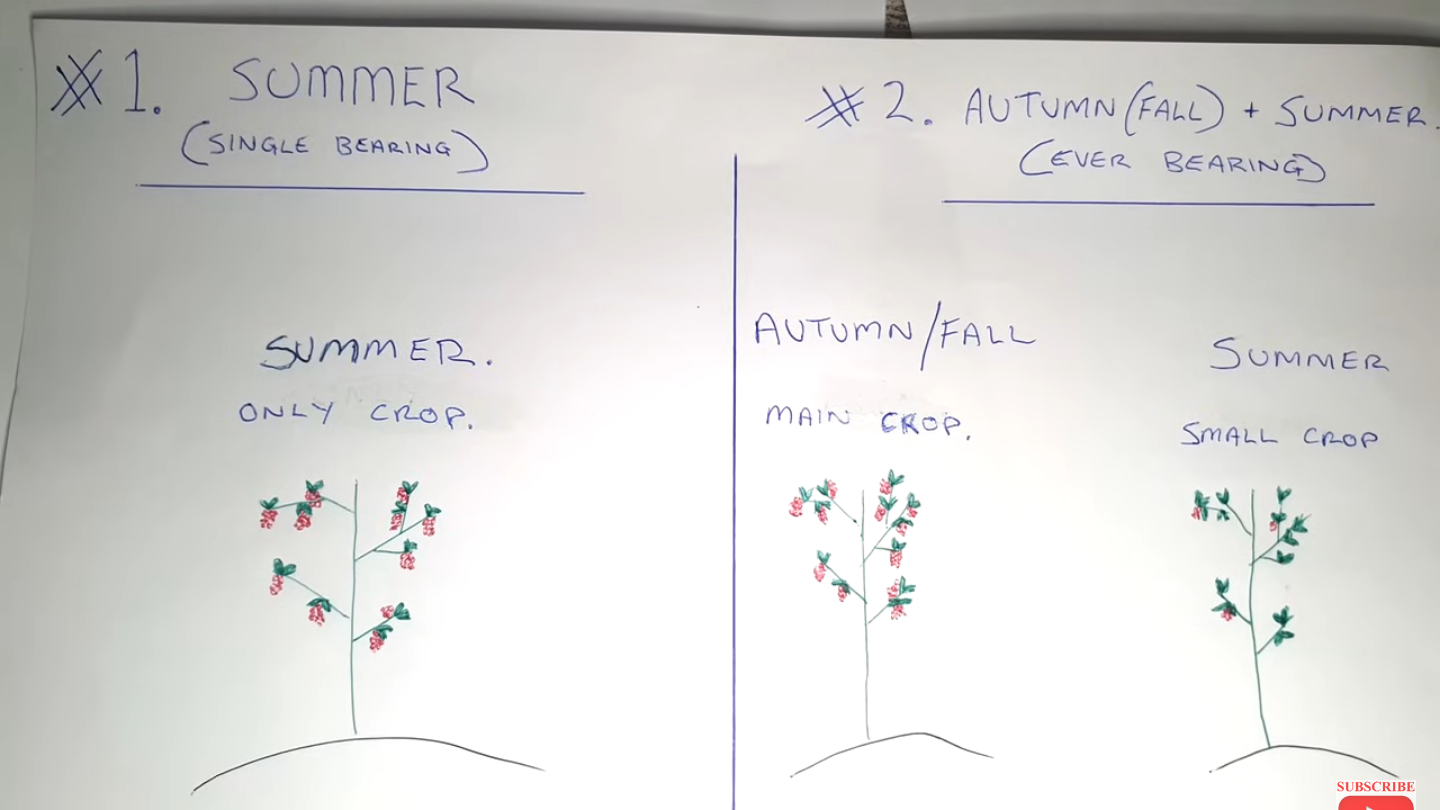 # 1. SUMMER
(SINGLE BEARING)
SUMMER.
ONLY CROP.
# 2. AUTUMN (FALL) + SUMMER.
(EVER BEARING)
AUTUMN/FALL
MAIN CROP.
SUMMER
SMALL CROP
SUBSCRIBE